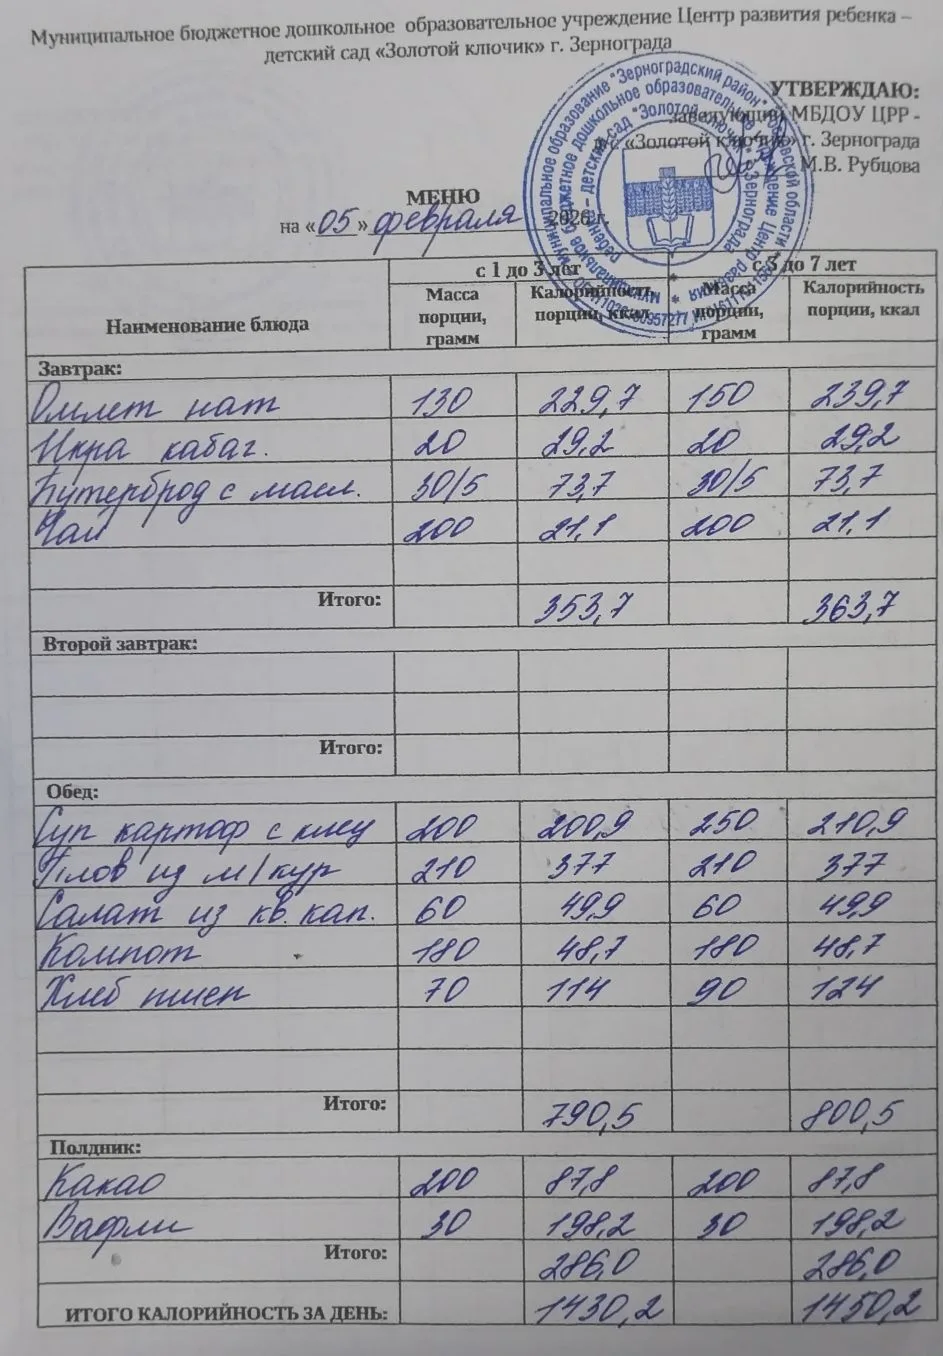 Муниципальное бюджетное дошкольное образовательное учреждение Центр развития ребенка –
детский сад «Золотой ключик» г. Зернограда
УТВЕРЖДАЮ:
заведующий МБДОУ ЦРР -
д/с «Золотой ключик» г. Зернограда
М.В. Рубцова
МЕНЮ
на «05» февраля 2026 г.
Наименование блюда с 1 до 3 лет с 3 до 7 лет
Масса порции, грамм Калорийность порции, ккал Масса порции, грамм Калорийность порции, ккал
Завтрак:
Омлет нат 130 229,7 150 239,7
Икра кабаг. 20 29,2 20 29,2
Бутерброд с масл. 30/5 73,7 30/5 73,7
Чай 200 21,1 200 21,1
Итого: 353,7 363,7
Второй завтрак:
Итого:
Обед:
Суп картоф с клец 200 200,9 250 210,9
Плов из м/кур 210 377 210 377
Салат из кв. кап. 60 49,9 60 49,9
Компот 180 48,7 180 48,7
Хлеб пшен 70 114 90 124
Итого: 790,5 800,5
Полдник:
Какао 200 87,8 200 87,8
Вафли 30 198,2 30 198,2
Итого: 286,0 286,0
ИТОГО КАЛОРИЙНОСТЬ ЗА ДЕНЬ: 1430,2 1450,2